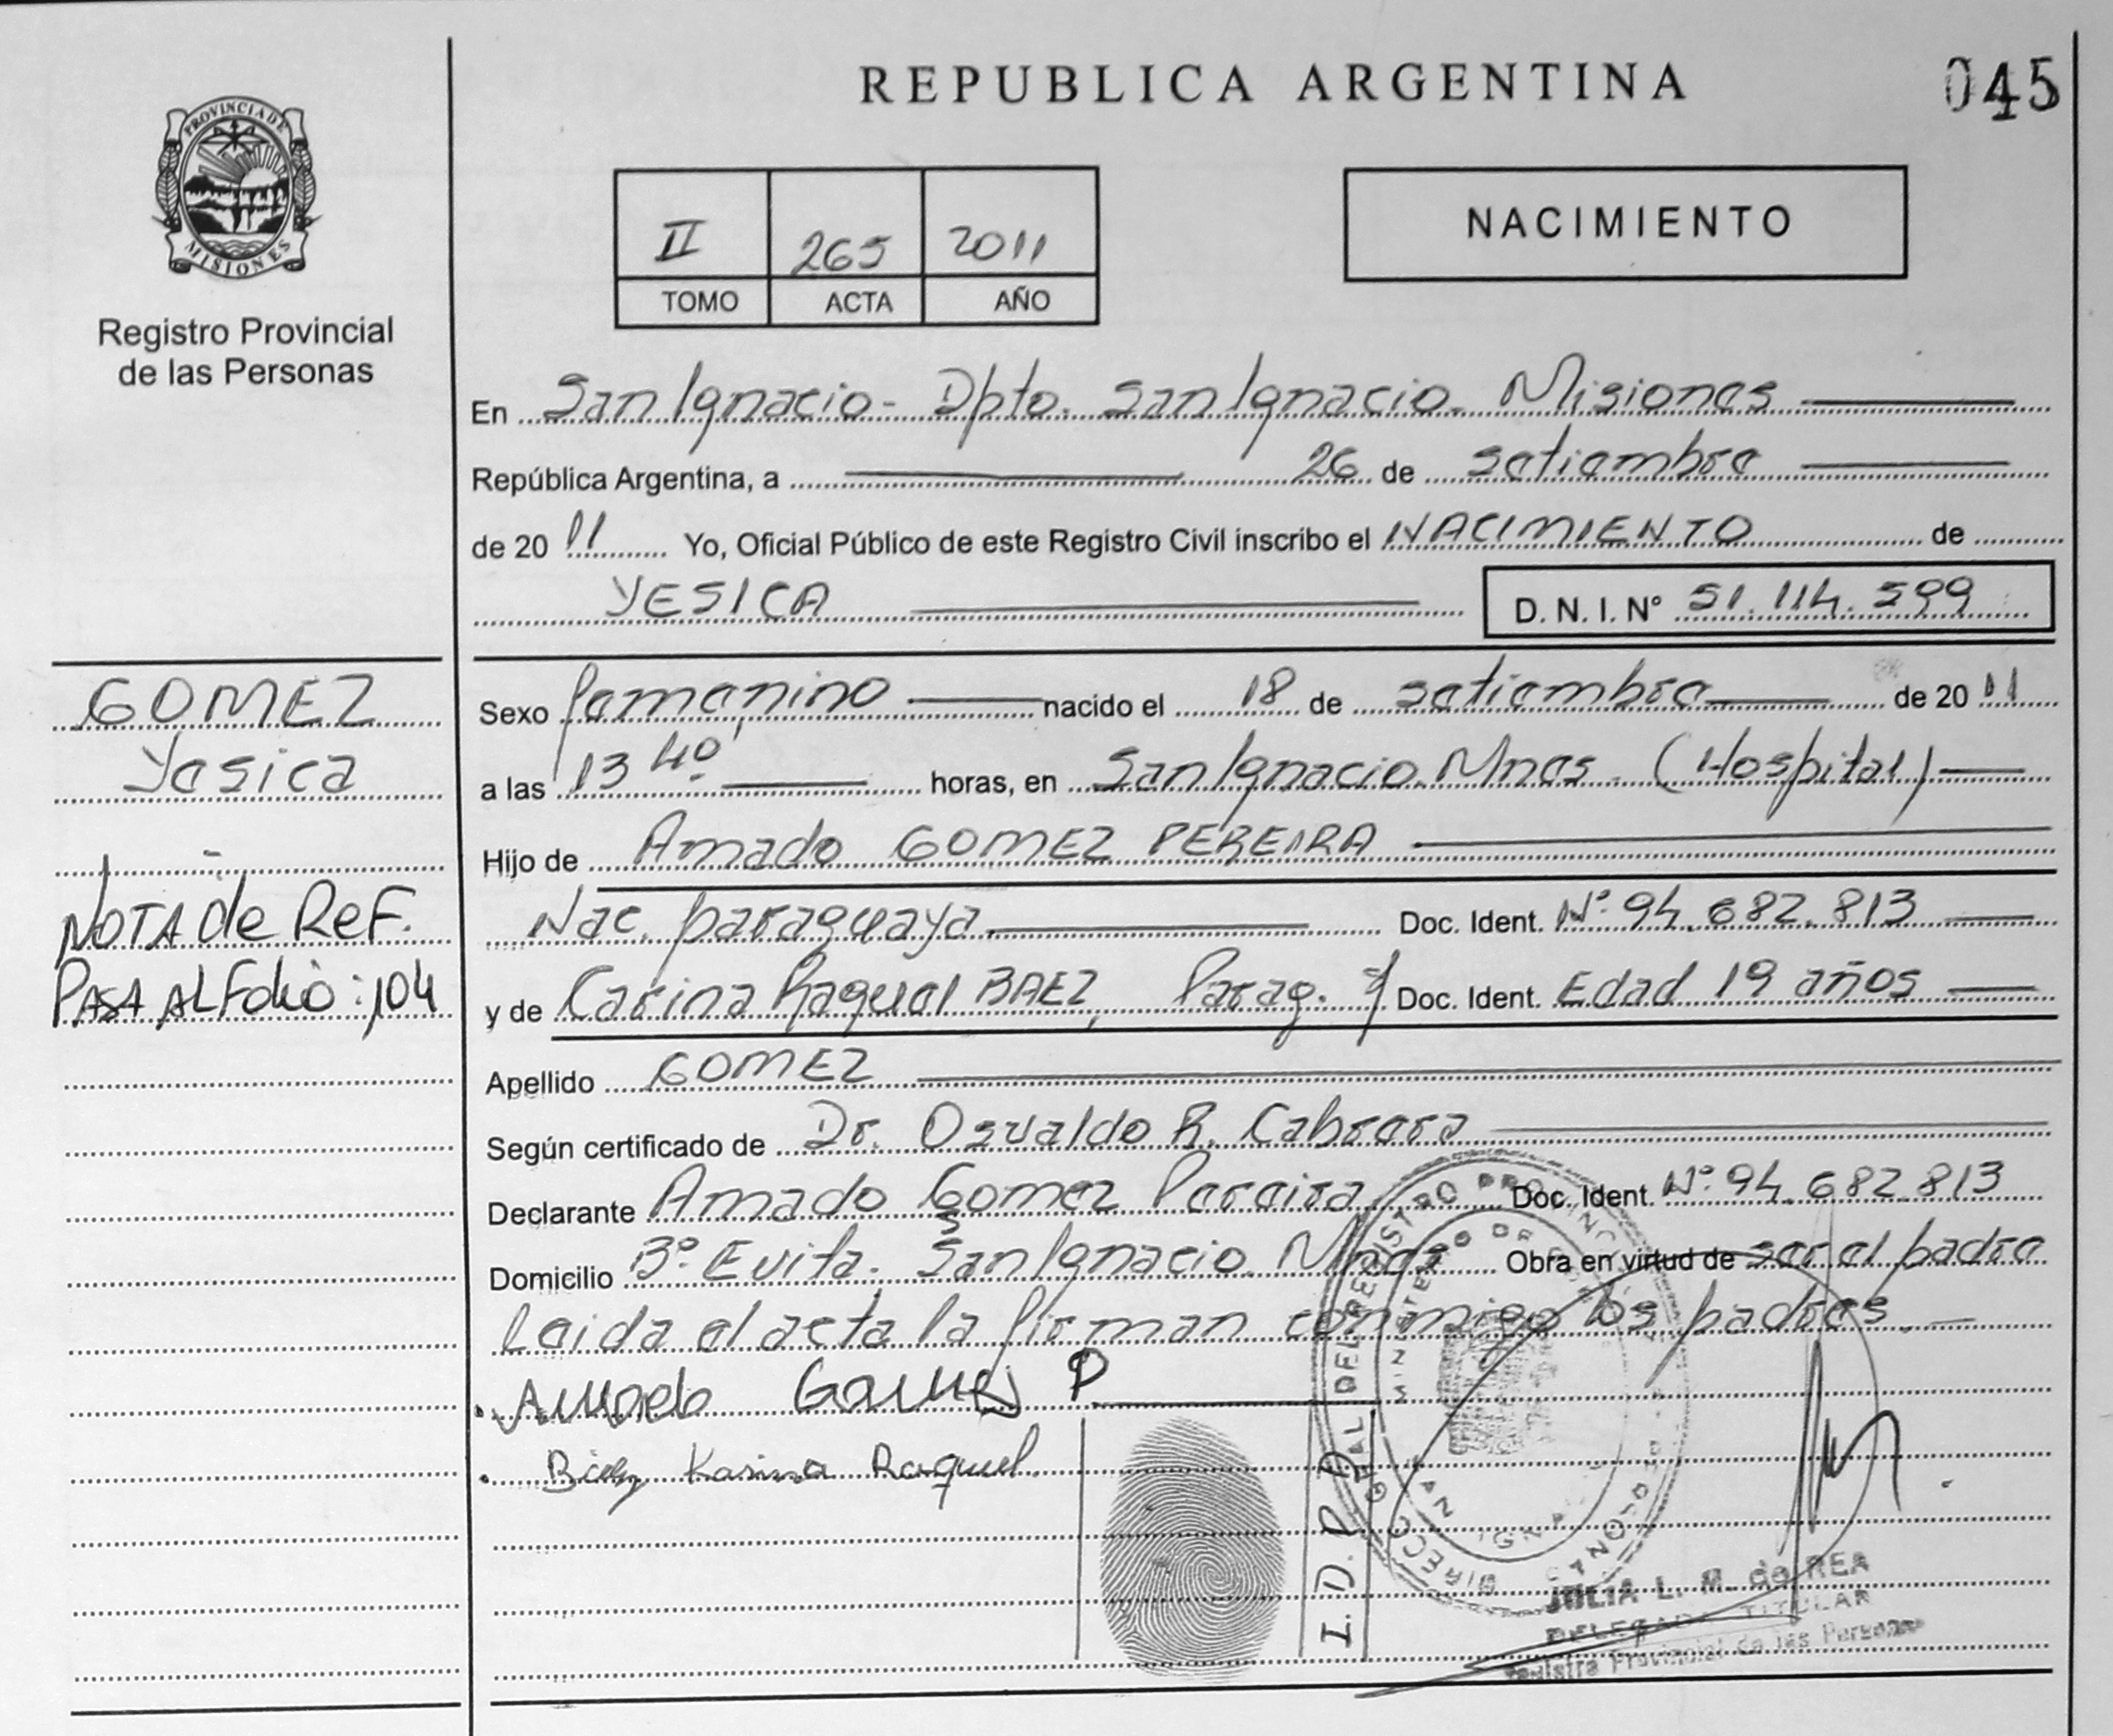 REPUBLICA ARGENTINA
045
PROVINCIA DE
MISIONES
Registro Provincial
de las Personas
II 265 2011
TOMO ACTA AÑO
NACIMIENTO
En San Ignacio - Dpto. San Ignacio - Misiones
República Argentina, a 26 de setiembre
de 2011 Yo, Oficial Público de este Registro Civil inscribo el NACIMIENTO de
YESICA D. N. I. N° 51.114.599
GOMEZ
Yesica
NOTA de ReF.
PASA AL Folio: 104
Sexo femenino nacido el 18 de setiembre de 2011
a las 13 40 horas, en San Ignacio. Mnes. (Hospital)
Hijo de Amado GOMEZ PEREIRA
Nac. paraguaya Doc. Ident. N° 94.682.813
y de Carina Raquel BAEZ, Parag. Doc. Ident. Edad 19 años
Apellido GOMEZ
Según certificado de Dr. Osvaldo R. Cabrera
Declarante Amado Gomez Pereira Doc. Ident. N° 94.682.813
Domicilio B° Evita. San Ignacio. Mnes Obra en virtud de ser el padre
Leida el acta la firman conmigo los padres.
Amado Gomez P
Karina Raquel
I. D. D.
JULIA L. M. de REA
DELEGADA TITULAR
Registro Provincial de las Personas